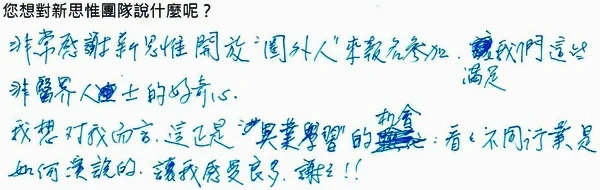 您想對新思惟團隊說什麼呢？
非常感謝新思惟開放"圈外人"來報名參加，讓我們這些
滿足
非醫界人士的好奇心.
我想對我而言，這正是"異業學習"的機會：看看不同行業是
如何演說的，讓我感受良多，謝謝!!